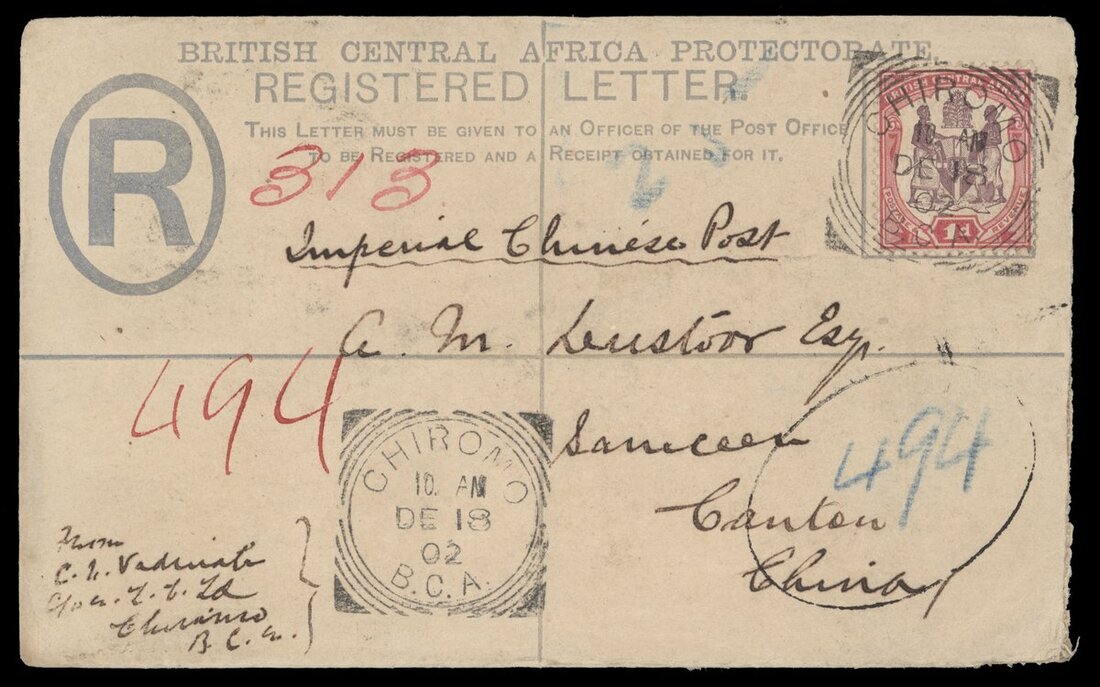 BRITISH CENTRAL AFRICA PROTECTORATE
REGISTERED LETTER.
THIS LETTER MUST BE GIVEN TO AN OFFICER OF THE POST OFFICE
TO BE REGISTERED AND A RECEIPT OBTAINED FOR IT.
R
313
23
BRITISH CENTRAL AFRICA
POSTAGE & REVENUE
1d
CHIROMO
10. AM
DE 18
02
B.C.A.
Imperial Chinese Post
A. M. Esq.
494
Canton
China
494
CHIROMO
10. AM
DE 18
02
B.C.A.
From
C. Ld
Chiromo
B. C. A.